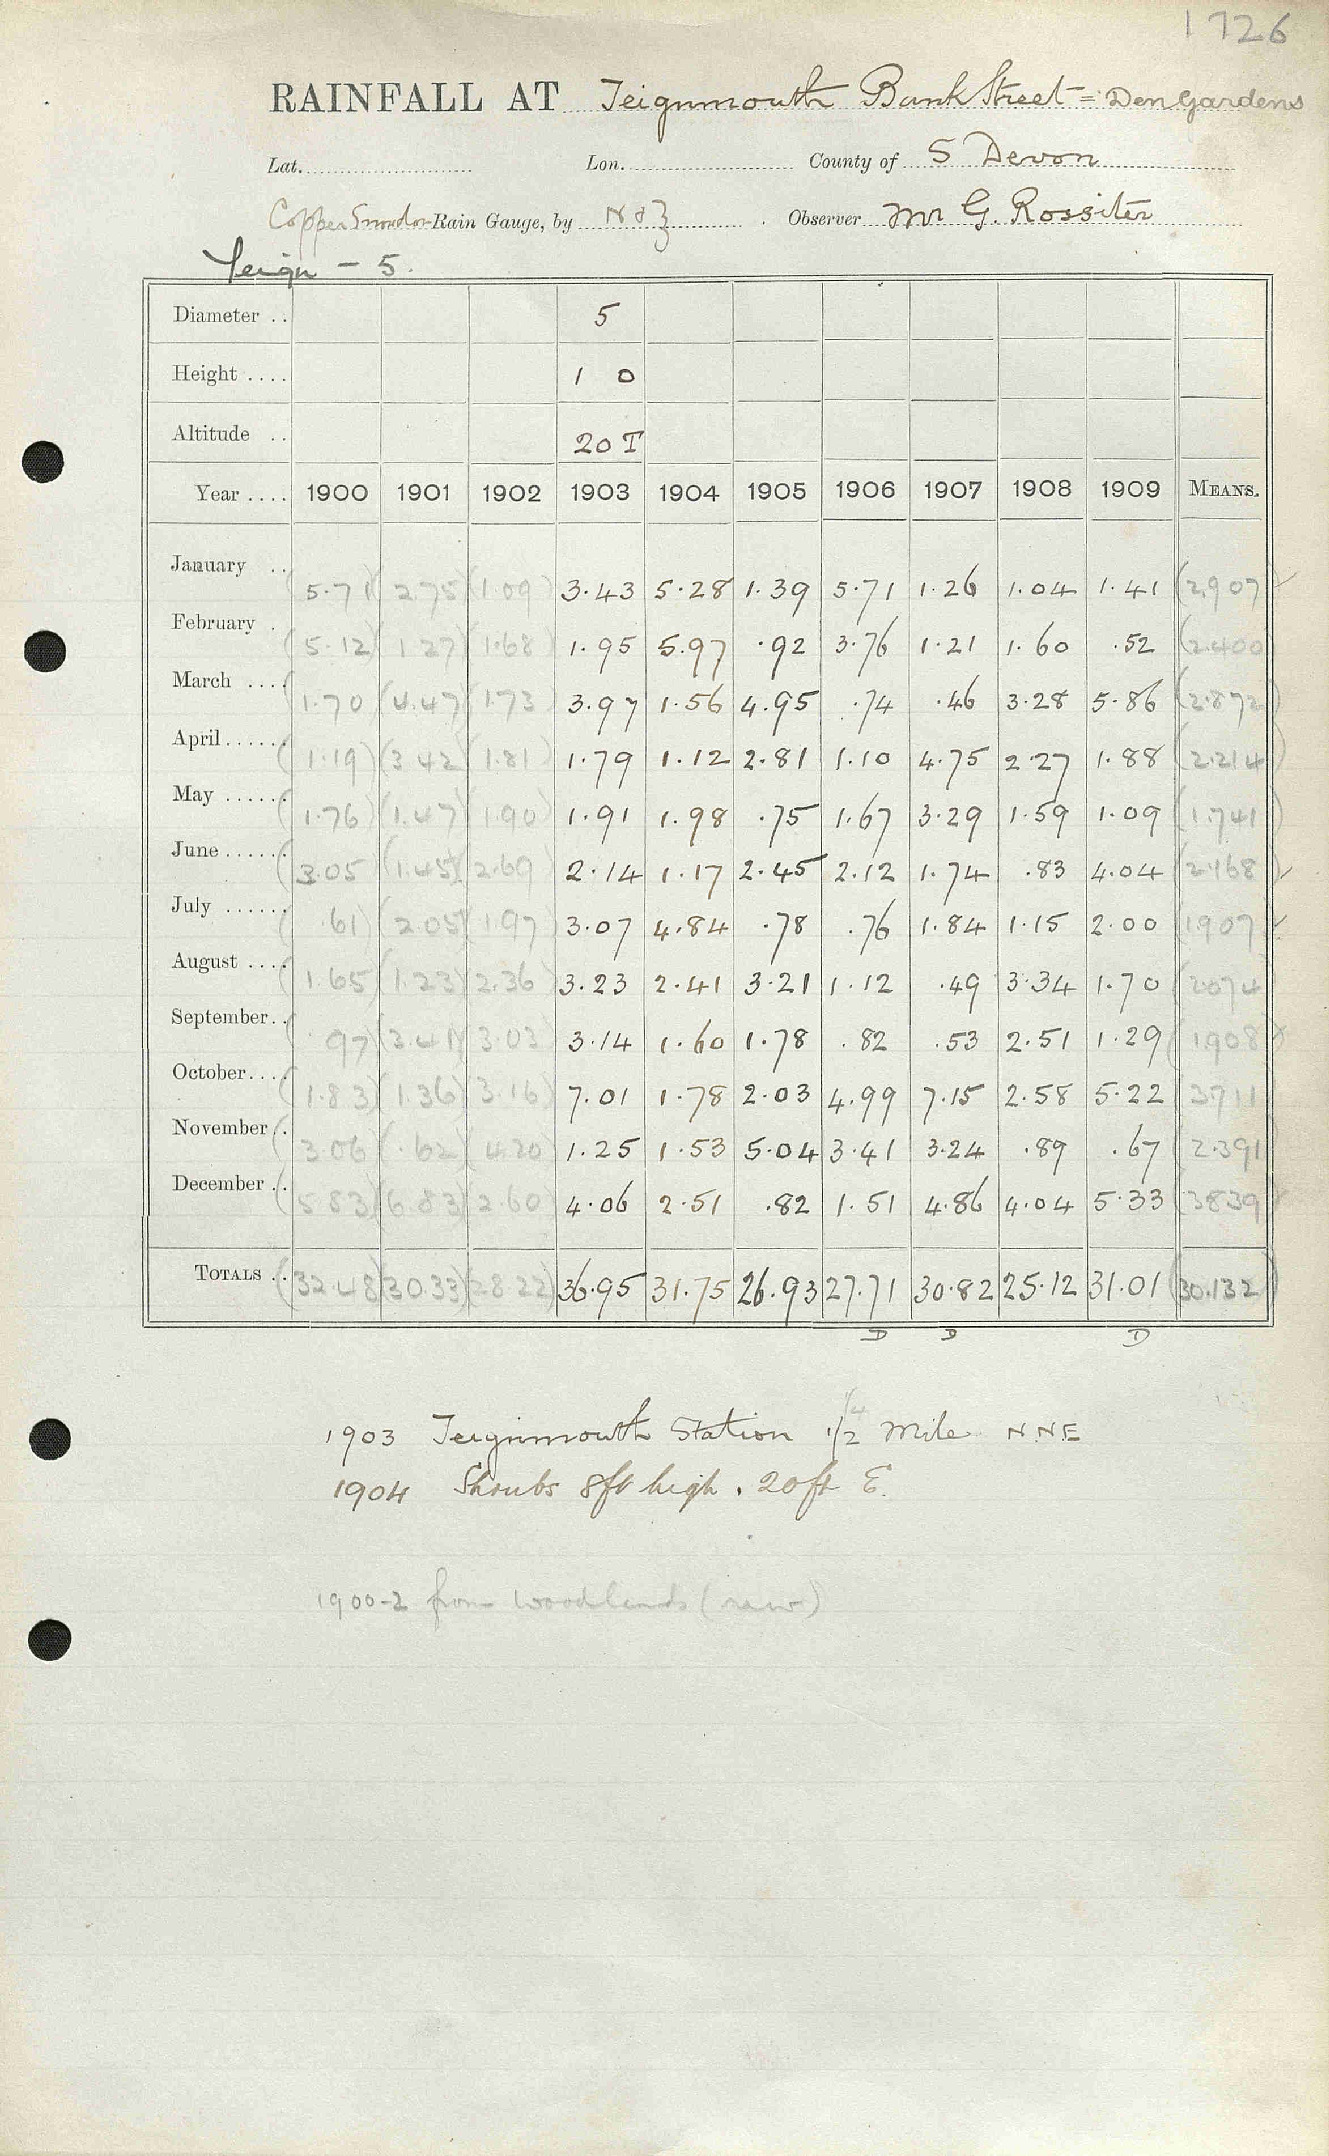 1726
RAINFALL AT Teignmouth Bank Street = Den Gardens
Lat. Lon. County of S Devon
Copper Snowdon Rain Gauge, by N & Z Observer Mr G. Rossiter
Teign - 5.
Diameter .. 5
Height .... 1 0
Altitude .. 20 T
Year .... 1900 1901 1902 1903 1904 1905 1906 1907 1908 1909 MEANS.
January .. (5.71) (2.75) (1.09) 3.43 5.28 1.39 5.71 1.26 1.04 1.41 (2.907)
February . (5.12) (1.27) (1.68) 1.95 5.97 .92 3.76 1.21 1.60 .52 (2.400)
March .... (1.70) (4.47) (1.73) 3.97 1.56 4.95 .74 .46 3.28 5.86 (2.872)
April...... (1.19) (3.42) (1.81) 1.79 1.12 2.81 1.10 4.75 2.27 1.88 (2.214)
May ...... (1.76) (1.47) (1.90) 1.91 1.98 .75 1.67 3.29 1.59 1.09 (1.741)
June...... (3.05) (1.45) (2.69) 2.14 1.17 2.45 2.12 1.74 .83 4.04 (2.168)
July ...... (.61) (2.05) (1.97) 3.07 4.84 .78 .76 1.84 1.15 2.00 (1.907)
August .... (1.65) (1.23) (2.36) 3.23 2.41 3.21 1.12 .49 3.34 1.70 (2.074)
September.. (.97) (3.41) (3.03) 3.14 1.60 1.78 .82 .53 2.51 1.29 (1.908)
October.... (1.83) (1.36) (3.16) 7.01 1.78 2.03 4.99 7.15 2.58 5.22 (3.711)
November . (3.06) (.62) (4.20) 1.25 1.53 5.04 3.41 3.24 .89 .67 (2.391)
December .. (5.83) (6.83) (2.60) 4.06 2.51 .82 1.51 4.86 4.04 5.33 (3.839)
TOTALS .. (32.48) (30.33) (28.22) 36.95 31.75 26.93 27.71 30.82 25.12 31.01 (30.132)
D D D
1/4
1903 Teignmouth Station 1/2 mile NNE
1904 Shrubs 8ft high. 20ft E.
1900-2 from Woodlands (raw)